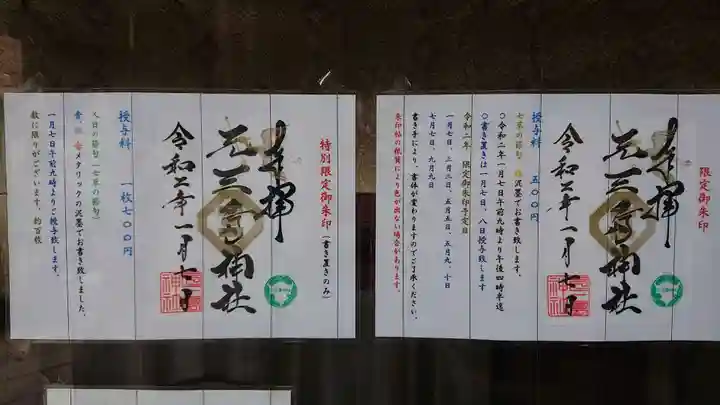 限定御朱印
奉拝
元三島神社
令和二年一月七日
授与料 五〇〇円
七草の節句 泥墨でお書き致します
〇令和二年一月七日午前九時より午後四時半迄
〇書き置きは一月七日、八日授与致します
令和二年 限定御朱印予定日
一月七日、三月三日、五月五日、五月九、十日
七月七日、九月九日
書き手により、書体が変わりますのでご了承ください。
朱印帖の紙質により色が出ない場合があります。
特別限定御朱印(書き置きのみ)
奉拝
元三島神社
令和二年一月七日
授与料 一枚七〇〇円
人日の節句(七草の節句)
メタリックの泥墨でお書き致しました。
一月七日午前九時よりご授与致します。
数に限りがございます。約百枚